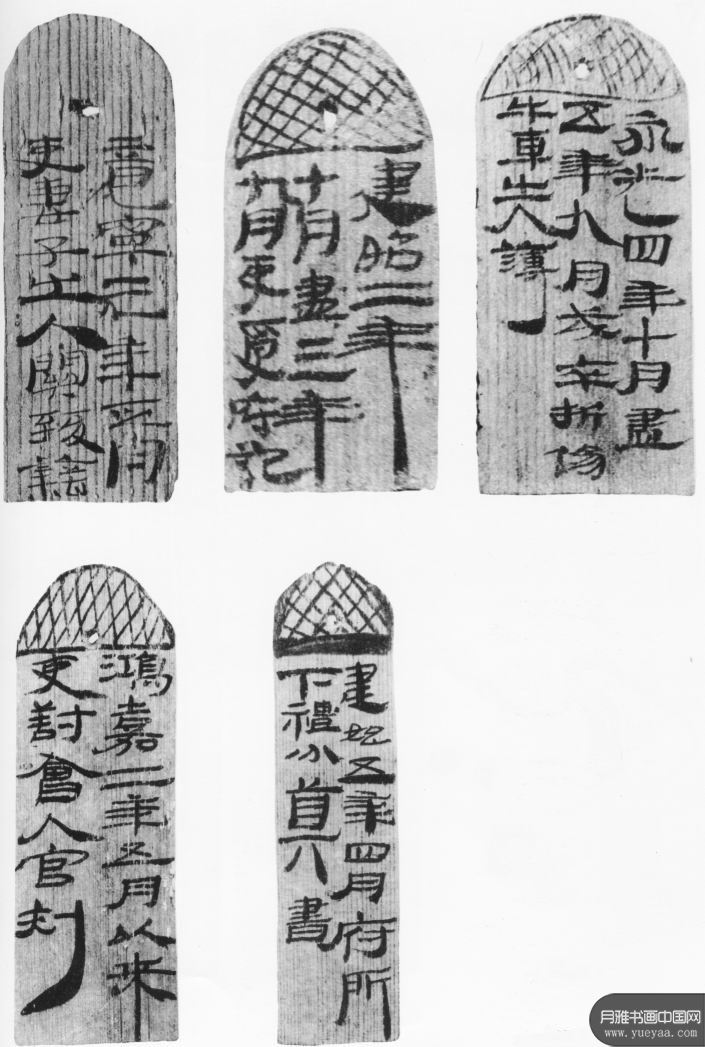 竟寧元年正月
吏妻子出入關致籍
建昭二年
十月盡三年
九月吏受府記
永光四年十月盡
五年九月戍卒折傷
牛車出入簿
鴻嘉二年五月以來
吏對會入官刺
建始五年四月府所
下禮分書
月雅书画中国网
www.yueyaa.com